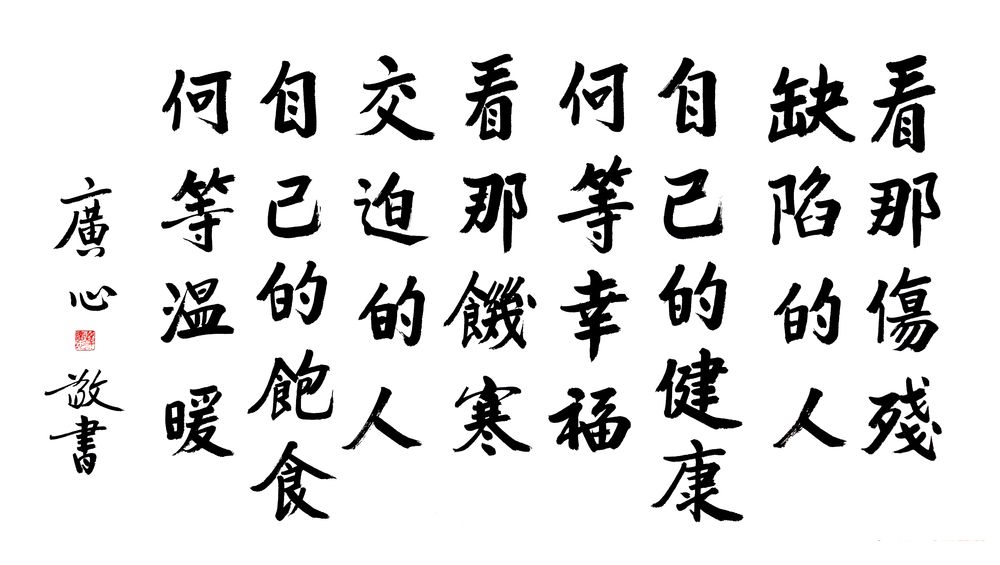 看那傷殘
缺陷的人
自己的健康
何等幸福
看那饑寒
交迫的人
自己的飽食
何等溫暖
廣心
敬書